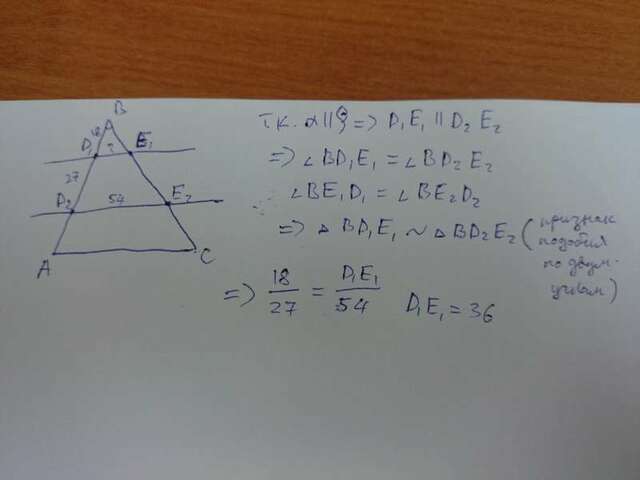 B
18
D₁ ? E₁
27
D₂ 54 E₂
A C
т.к. α||β => D₁E₁ || D₂E₂
=> ∠BD₁E₁ = ∠BD₂E₂
∠BE₁D₁ = ∠BE₂D₂
=> △BD₁E₁ ~ △BD₂E₂ (признак
подобия
по двум
углам)
=> 18/27 = D₁E₁/54 D₁E₁ = 36